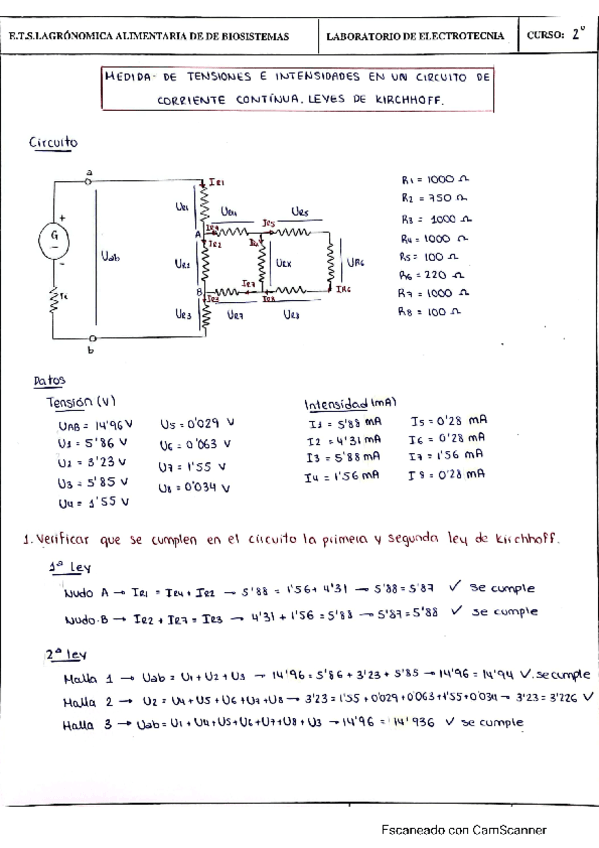 E.T.S.I.AGRÓNOMICA ALIMENTARIA DE DE BIOSISTEMAS
LABORATORIO DE ELECTROTECNIA
CURSO: 2º
MEDIDA DE TENSIONES E INTENSIDADES EN UN CIRCUITO DE
CORRIENTE CONTÍNUA. LEYES DE KIRCHHOFF.
Circuito
a
IR1
UR1
UR4
IR5
UR5
A
IR4
IR2
G
+
-
Uab
UR2
URX
UR6
B
IR7
IR8
IR6
UR3
UR7
UR8
b
R1 = 1000 Ω
R2 = 750 Ω
R3 = 1000 Ω
R4 = 1000 Ω
R5 = 100 Ω
R6 = 220 Ω
R7 = 1000 Ω
R8 = 100 Ω
Datos
Tensión (V)
UAB = 14'96 V
U1 = 5'86 V
U2 = 3'23 V
U3 = 5'85 V
U4 = 1'55 V
U5 = 0'029 V
U6 = 0'063 V
U7 = 1'55 V
U8 = 0'034 V
Intensidad (mA)
I1 = 5'88 mA
I2 = 4'31 mA
I3 = 5'88 mA
I4 = 1'56 mA
I5 = 0'28 mA
I6 = 0'28 mA
I7 = 1'56 mA
I8 = 0'28 mA
1. Verificar que se cumplen en el circuito la primera y segunda ley de Kirchhoff.
1ª ley
Nudo A → IR1 = IR4 + IR2 → 5'88 = 1'56 + 4'31 → 5'88 = 5'87 ✓ se cumple
Nudo B → IR2 + IR7 = IR3 → 4'31 + 1'56 = 5'88 → 5'87 = 5'88 ✓ se cumple
2ª ley
Malla 1 → Uab = U1 + U2 + U3 → 14'96 = 5'86 + 3'23 + 5'85 → 14'96 = 14'94 ✓. se cumple
Malla 2 → U2 = U4 + U5 + U6 + U7 + U8 → 3'23 = 1'55 + 0'029 + 0'063 + 1'55 + 0'034 → 3'23 = 3'226 ✓
Malla 3 → Uab = U1 + U4 + U5 + U6 + U7 + U8 + U3 → 14'96 = 14'936 ✓ se cumple
Escaneado con CamScanner